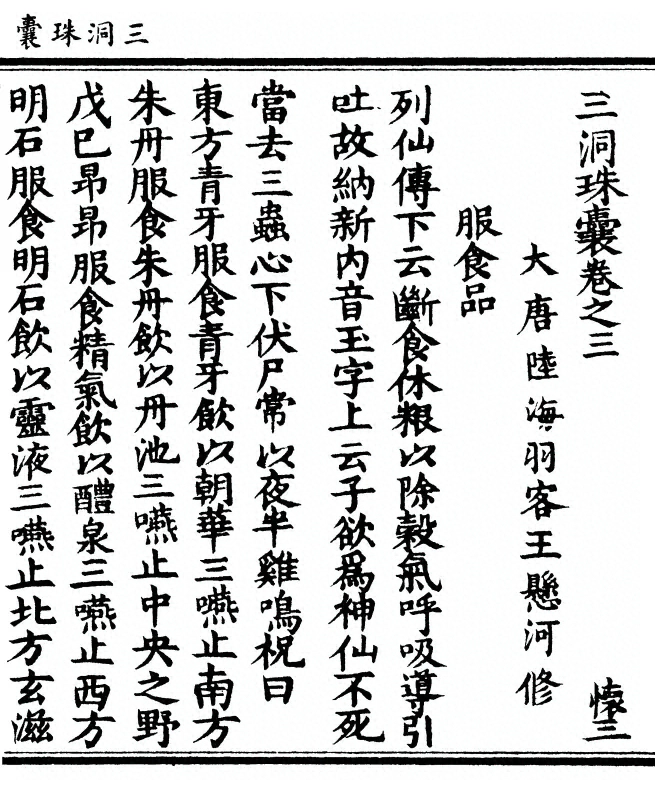 三洞珠囊
三洞珠囊卷之三　懐三
大唐陸海羽客王懸河修
服食品
列仙傳下云斷食休粮以除穀氣呼吸導引
吐故納新内音玉字上云子欲爲神仙不死
當去三蟲心下伏尸常以夜半雞鳴祝曰
東方青牙服食青牙飲以朝華三嚥止南方
朱丹服食朱丹飲以丹池三嚥止中央之野
戊巳昂昂服食精氣飲以醴泉三嚥止西方
明石服食明石飲以靈液三嚥止北方玄滋